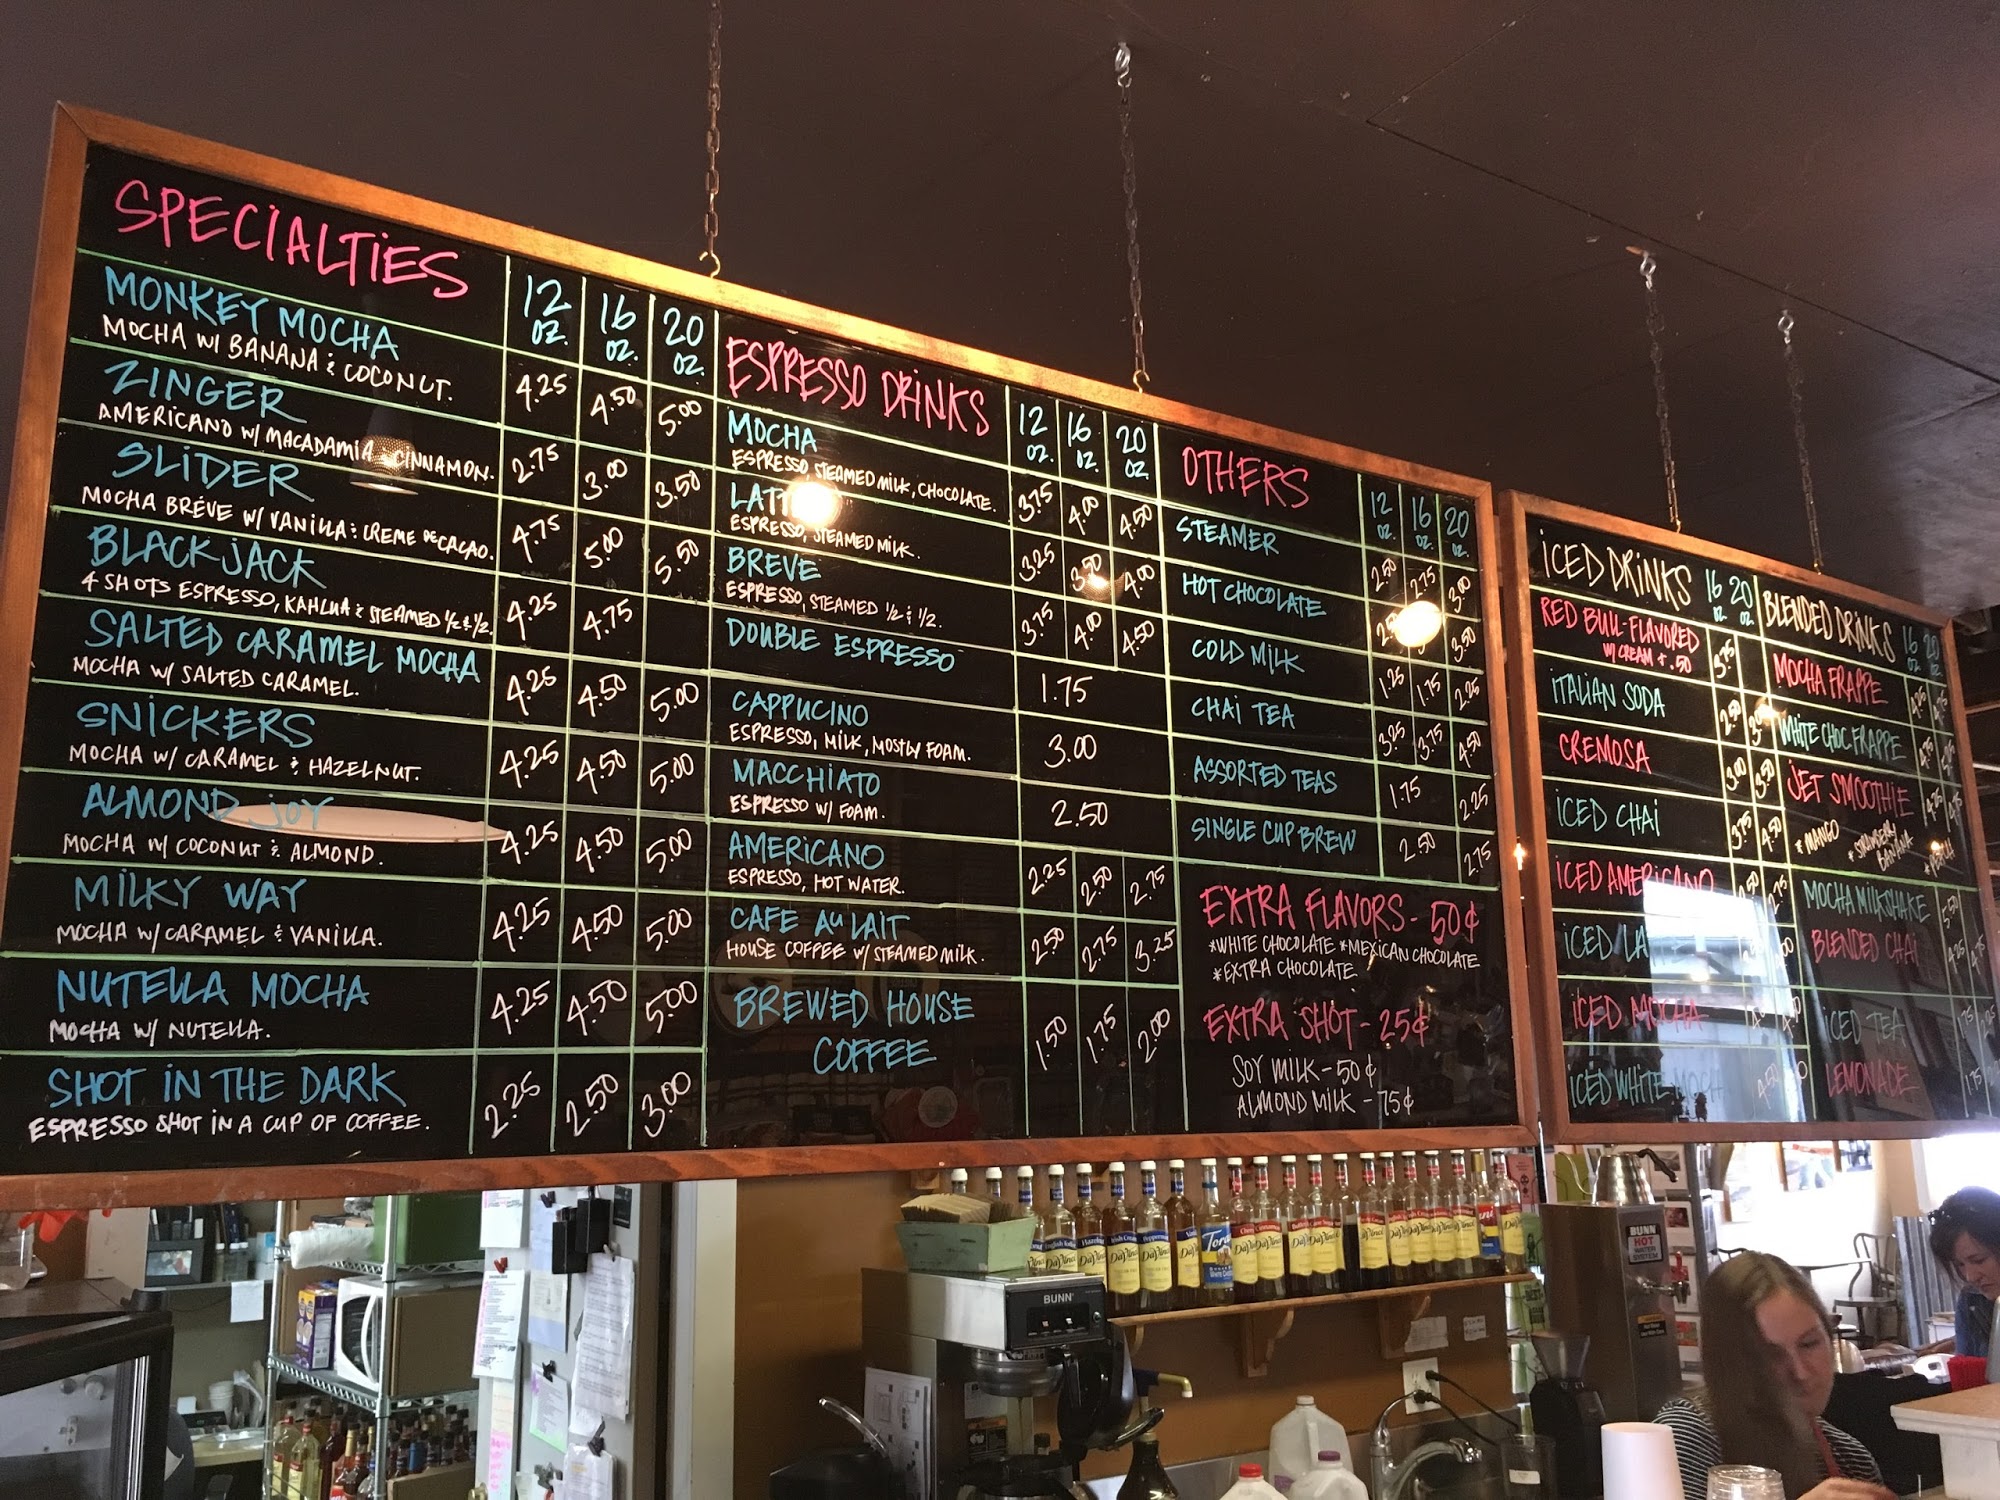 SPECIALTIES
12 OZ. 16 OZ. 20 OZ.
MONKEY MOCHA
MOCHA W/ BANANA & COCONUT.
4.25 4.50 5.00
ZINGER
AMERICANO W/ MACADAMIA & CINNAMON.
2.75 3.00 3.50
SLIDER
MOCHA BRÉVE W/ VANILLA & CREME DE CACAO.
4.75 5.00 5.50
BLACKJACK
4 SHOTS ESPRESSO, KAHLUA & STEAMED 1/2 & 1/2.
4.25 4.75
SALTED CARAMEL MOCHA
MOCHA W/ SALTED CARAMEL.
4.25 4.50 5.00
SNICKERS
MOCHA W/ CARAMEL & HAZELNUT.
4.25 4.50 5.00
ALMOND JOY
MOCHA W/ COCONUT & ALMOND.
4.25 4.50 5.00
MILKY WAY
MOCHA W/ CARAMEL & VANILLA.
4.25 4.50 5.00
NUTELLA MOCHA
MOCHA W/ NUTELLA.
4.25 4.50 5.00
SHOT IN THE DARK
ESPRESSO SHOT IN A CUP OF COFFEE.
2.25 2.50 3.00
ESPRESSO DRINKS
12 OZ. 16 OZ. 20 OZ.
MOCHA
ESPRESSO, STEAMED MILK, CHOCOLATE.
3.75 4.00 4.50
LATTE
ESPRESSO, STEAMED MILK.
3.25 3.50 4.00
BREVE
ESPRESSO, STEAMED 1/2 & 1/2.
3.75 4.00 4.50
DOUBLE ESPRESSO
1.75
CAPPUCINO
ESPRESSO, MILK, MOSTLY FOAM.
3.00
MACCHIATO
ESPRESSO W/ FOAM.
2.50
AMERICANO
ESPRESSO, HOT WATER.
2.25 2.50 2.75
CAFE AU LAIT
HOUSE COFFEE W/ STEAMED MILK.
2.50 2.75 3.25
BREWED HOUSE
COFFEE
1.50 1.75 2.00
OTHERS
12 OZ. 16 OZ. 20 OZ.
STEAMER
2.50 2.75 3.00
HOT CHOCOLATE
3.50
COLD MILK
1.25 1.75 2.25
CHAI TEA
3.25 3.75 4.50
ASSORTED TEAS
1.75 2.25
SINGLE CUP BREW
2.50 2.75
EXTRA FLAVORS - 50¢
*WHITE CHOCOLATE *MEXICAN CHOCOLATE
*EXTRA CHOCOLATE.
EXTRA SHOT - 25¢
SOY MILK - 50¢
ALMOND MILK - 75¢
ICED DRINKS
16 OZ 20 OZ
RED BULL-FLAVORED
W/ CREAM + .50
3.75
ITALIAN SODA
2.50
CREMOSA
3.00 3.50
ICED CHAI
3.75 4.50
ICED AMERICANO
ICED
ICED MOCHA
ICED WHITE MOCHA
BLENDED DRINKS
16 OZ 20 OZ
MOCHA FRAPPE
4.25 4.75
WHITE CHOC FRAPPE
4.75 5.25
JET SMOOTHIE
4.25
*MANGO
*STRAWBERRY
BANANA
MOCHA MILKSHAKE
5.50
BLENDED CHAI
4.25 4.75
ICED TEA
1.75 2.25
LEMONADE
1.75
BUNN
BUNN
HOT
WATER
SYSTEM
DaVinci
Torani